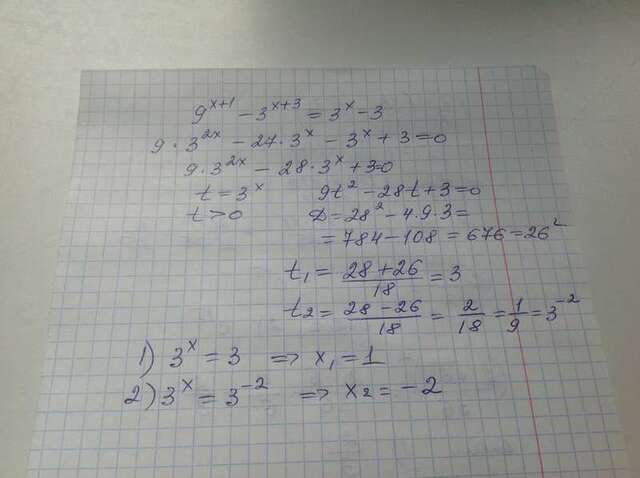 9^{x+1} - 3^{x+3} = 3^x - 3
9 · 3^{2x} - 27 · 3^x - 3^x + 3 = 0
9 · 3^{2x} - 28 · 3^x + 3 = 0
t = 3^x 9t^2 - 28t + 3 = 0
t > 0 D = 28^2 - 4 · 9 · 3 =
= 784 - 108 = 676 = 26^2
t_1 = \frac{28 + 26}{18} = 3
t_2 = \frac{28 - 26}{18} = \frac{2}{18} = \frac{1}{9} = 3^{-2}
1) 3^x = 3 => x_1 = 1
2) 3^x = 3^{-2} => x_2 = -2